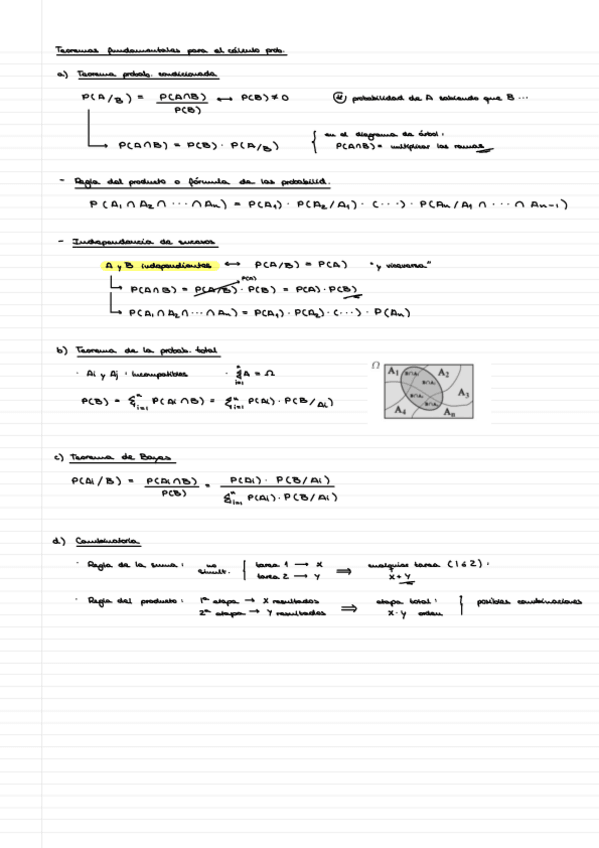 Teoremas fundamentales para el cálculo prob.
a) Teorema probab. condicionada
P(A/B) = P(A∩B) / P(B) ⟷ P(B) ≠ 0 probabilidad de A sabiendo que B ...
en el diagrama de árbol:
P(A∩B) = P(B) · P(A/B) P(A∩B) = multiplicar las ramas
- Regla del producto o fórmula de las probabilid.
P(A1 ∩ A2 ∩ ··· ∩ An) = P(A1) · P(A2/A1) · (···) · P(An/A1 ∩ ··· ∩ An-1)
- Independencia de sucesos
A y B independientes ⟷ P(A/B) = P(A) "y viceversa"
P(A)
P(A∩B) = P(A/B) · P(B) = P(A) · P(B)
P(A1 ∩ A2 ∩ ··· ∩ An) = P(A1) · P(A2) · (···) · P(An)
b) Teorema de la probab. total
· Ai y Aj : incompatibles · Σ i=1 n A = Ω
P(B) = Σ i=1 n P(Ai ∩ B) = Σ i=1 n P(Ai) · P(B/Ai)
Ω
A1 A2
B∩A1 B∩A2
A3
B∩A4
A4 An
c) Teorema de Bayes
P(Ai/B) = P(Ai∩B) / P(B) = P(Ai) · P(B/Ai) / Σ i=1 n P(Ai) · P(B/Ai)
d) Combinatoria
· Regla de la suma : no simult. { tarea 1 → X ⟹ cualquier tarea (1 ó 2) :
tarea 2 → Y x + y
· Regla del producto : 1ª etapa → X resultados ⟹ etapa total : { posibles combinaciones
2ª etapa → Y resultados x · y orden